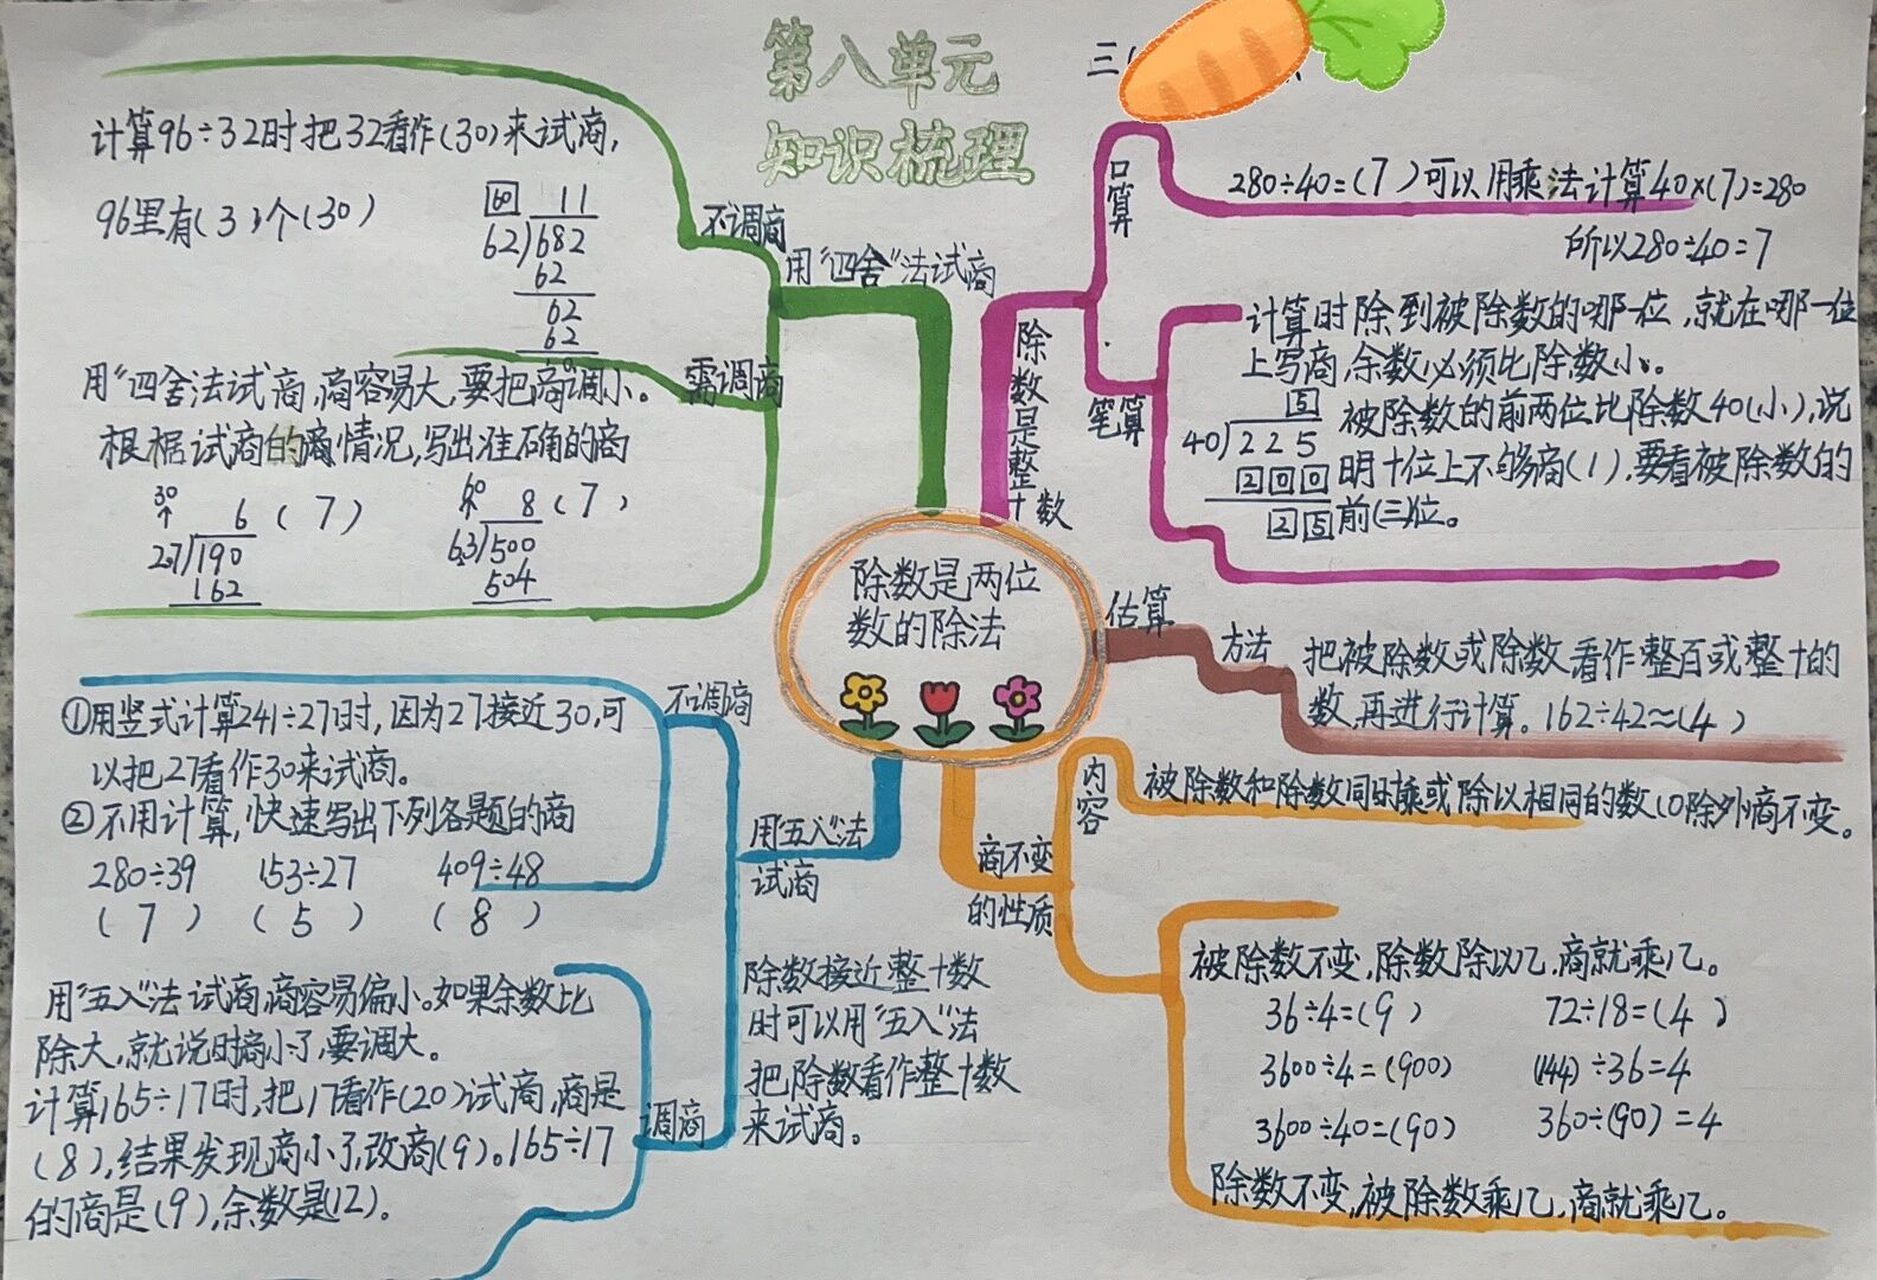 第八单元
知识梳理
三(
计算96÷32时把32看作(30)来试商,
96里有(3)个(30)
60
11
62)682
62
62
62
0
不调商
用"四舍"法试商
需调商
用"四舍法试商,商容易大,要把商调小。
根椐试商的商情况,写出准确的商
30
↑
6(7)
27)190
162
60
↑
8(7)
63)500
504
除数是整十数
口算
280÷40=(7)可以用乘法计算40×(7)=280
所以280÷40=7
笔算
计算时除到被除数的哪一位,就在哪一位
上写商,余数必须比除数小。
5
40)225
200
25
被除数的前两位比除数40(小),说
明十位上不够商(1),要看被除数的
前(三)位。
除数是两位
数的除法
估算
方法
把被除数或除数看作整百或整十的
数,再进行计算。162÷42≈(4)
不调商
①用竖式计算241÷27时,因为27接近30,可
以把27看作30来试商。
②不用计算,快速写出下列各题的商
280÷39 153÷27 409÷48
(7) (5) (8)
用"五入"法
试商
用"五入"法试商,商容易偏小。如果余数比
除大,就说时商小了,要调大。
计算165÷17时,把17看作(20)试商,商是
(8),结果发现商小了,改商(9)。165÷17
的商是(9),余数是(12)。
调商
除数接近整十数
时可以用"五入"法
把除数看作整十数
来试商。
商不变
的性质
内容
被除数和除数同时乘或除以相同的数(0除外)商不变。
被除数不变,除数除以几,商就乘几。
36÷4=(9) 72÷18=(4)
3600÷4=(900) (144)÷36=4
3600÷40=(90) 360÷(90)=4
除数不变,被除数乘几,商就乘几。